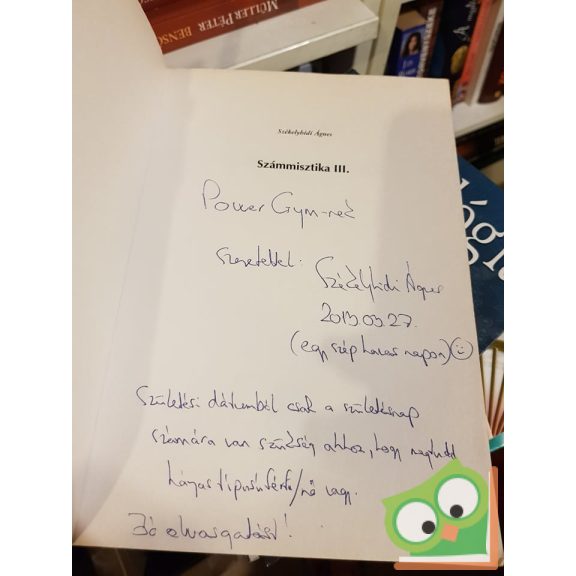 MÜLLER PÉTER
BENSŐ
Székelyhidi Ágnes
Számmisztika III.
Power Gym-nek
szeretettel:
Székelyhidi Ágnes
2013.03.27.
(egy szép havas napon)
Születési dátumból csak a születésnap
számára van szükség ahhoz, hogy megtudd
hányas típusú férfi/nő vagy.
Jó olvasgatást!